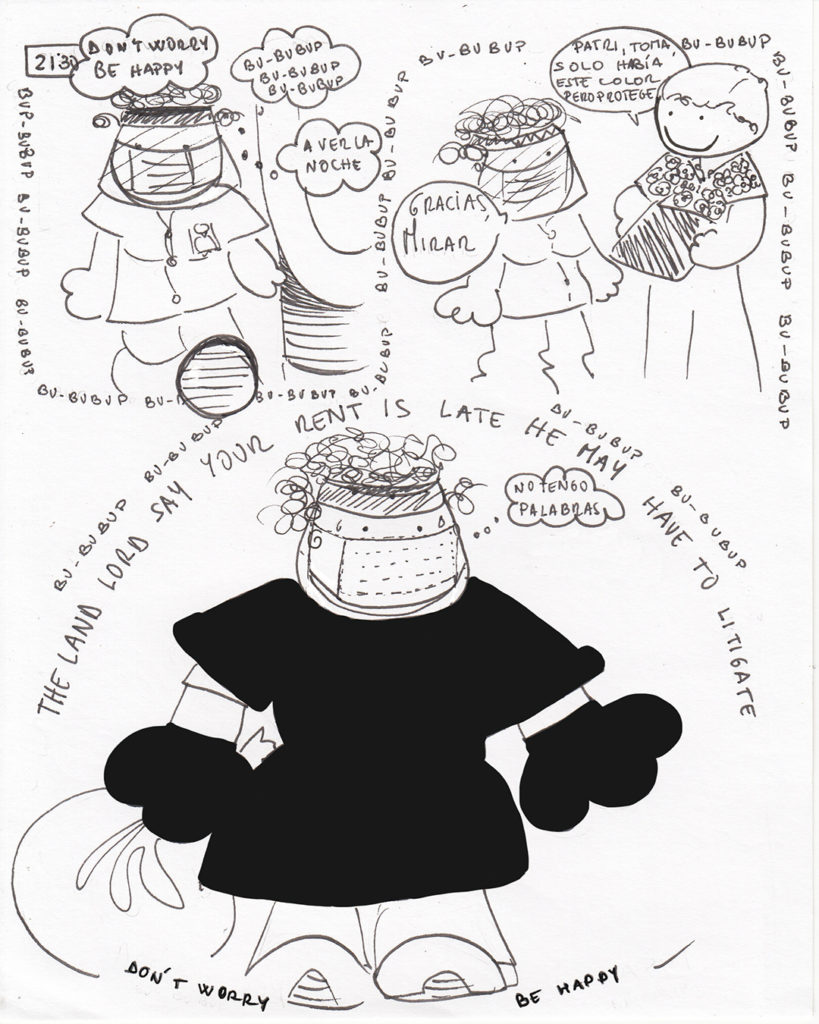 21:30
DON'T WORRY
BE HAPPY
BU-BUBUP
BU-BUBUP
BU-BUBUP
A VER LA
NOCHE
BUP-BUBUP BU-BUBUP BU-BUBUP BU-BUBU?
BU-BUBUP BU- BU-BUBUP BU-
BU-BUBUP BU-BUBUP BU-BUBUP BU-BUBUP
BU-BUBUP
PATRI, TOMA,
SOLO HABÍA
ESTE COLOR
PERO PROTEGE
BU-BUBUP
BU-BUBUP BU-BUBUP BU-BUBUP BU-BUBUP
GRACIAS,
MIRAR
BU-BUBUP BU-BUBUP BU-BUBUP BU-BUBUP BU-BUBUP
THE LAND LORD SAY YOUR RENT IS LATE HE MAY HAVE TO LITIGATE
NO TENGO
PALABRAS
DON'T WORRY BE HAPPY